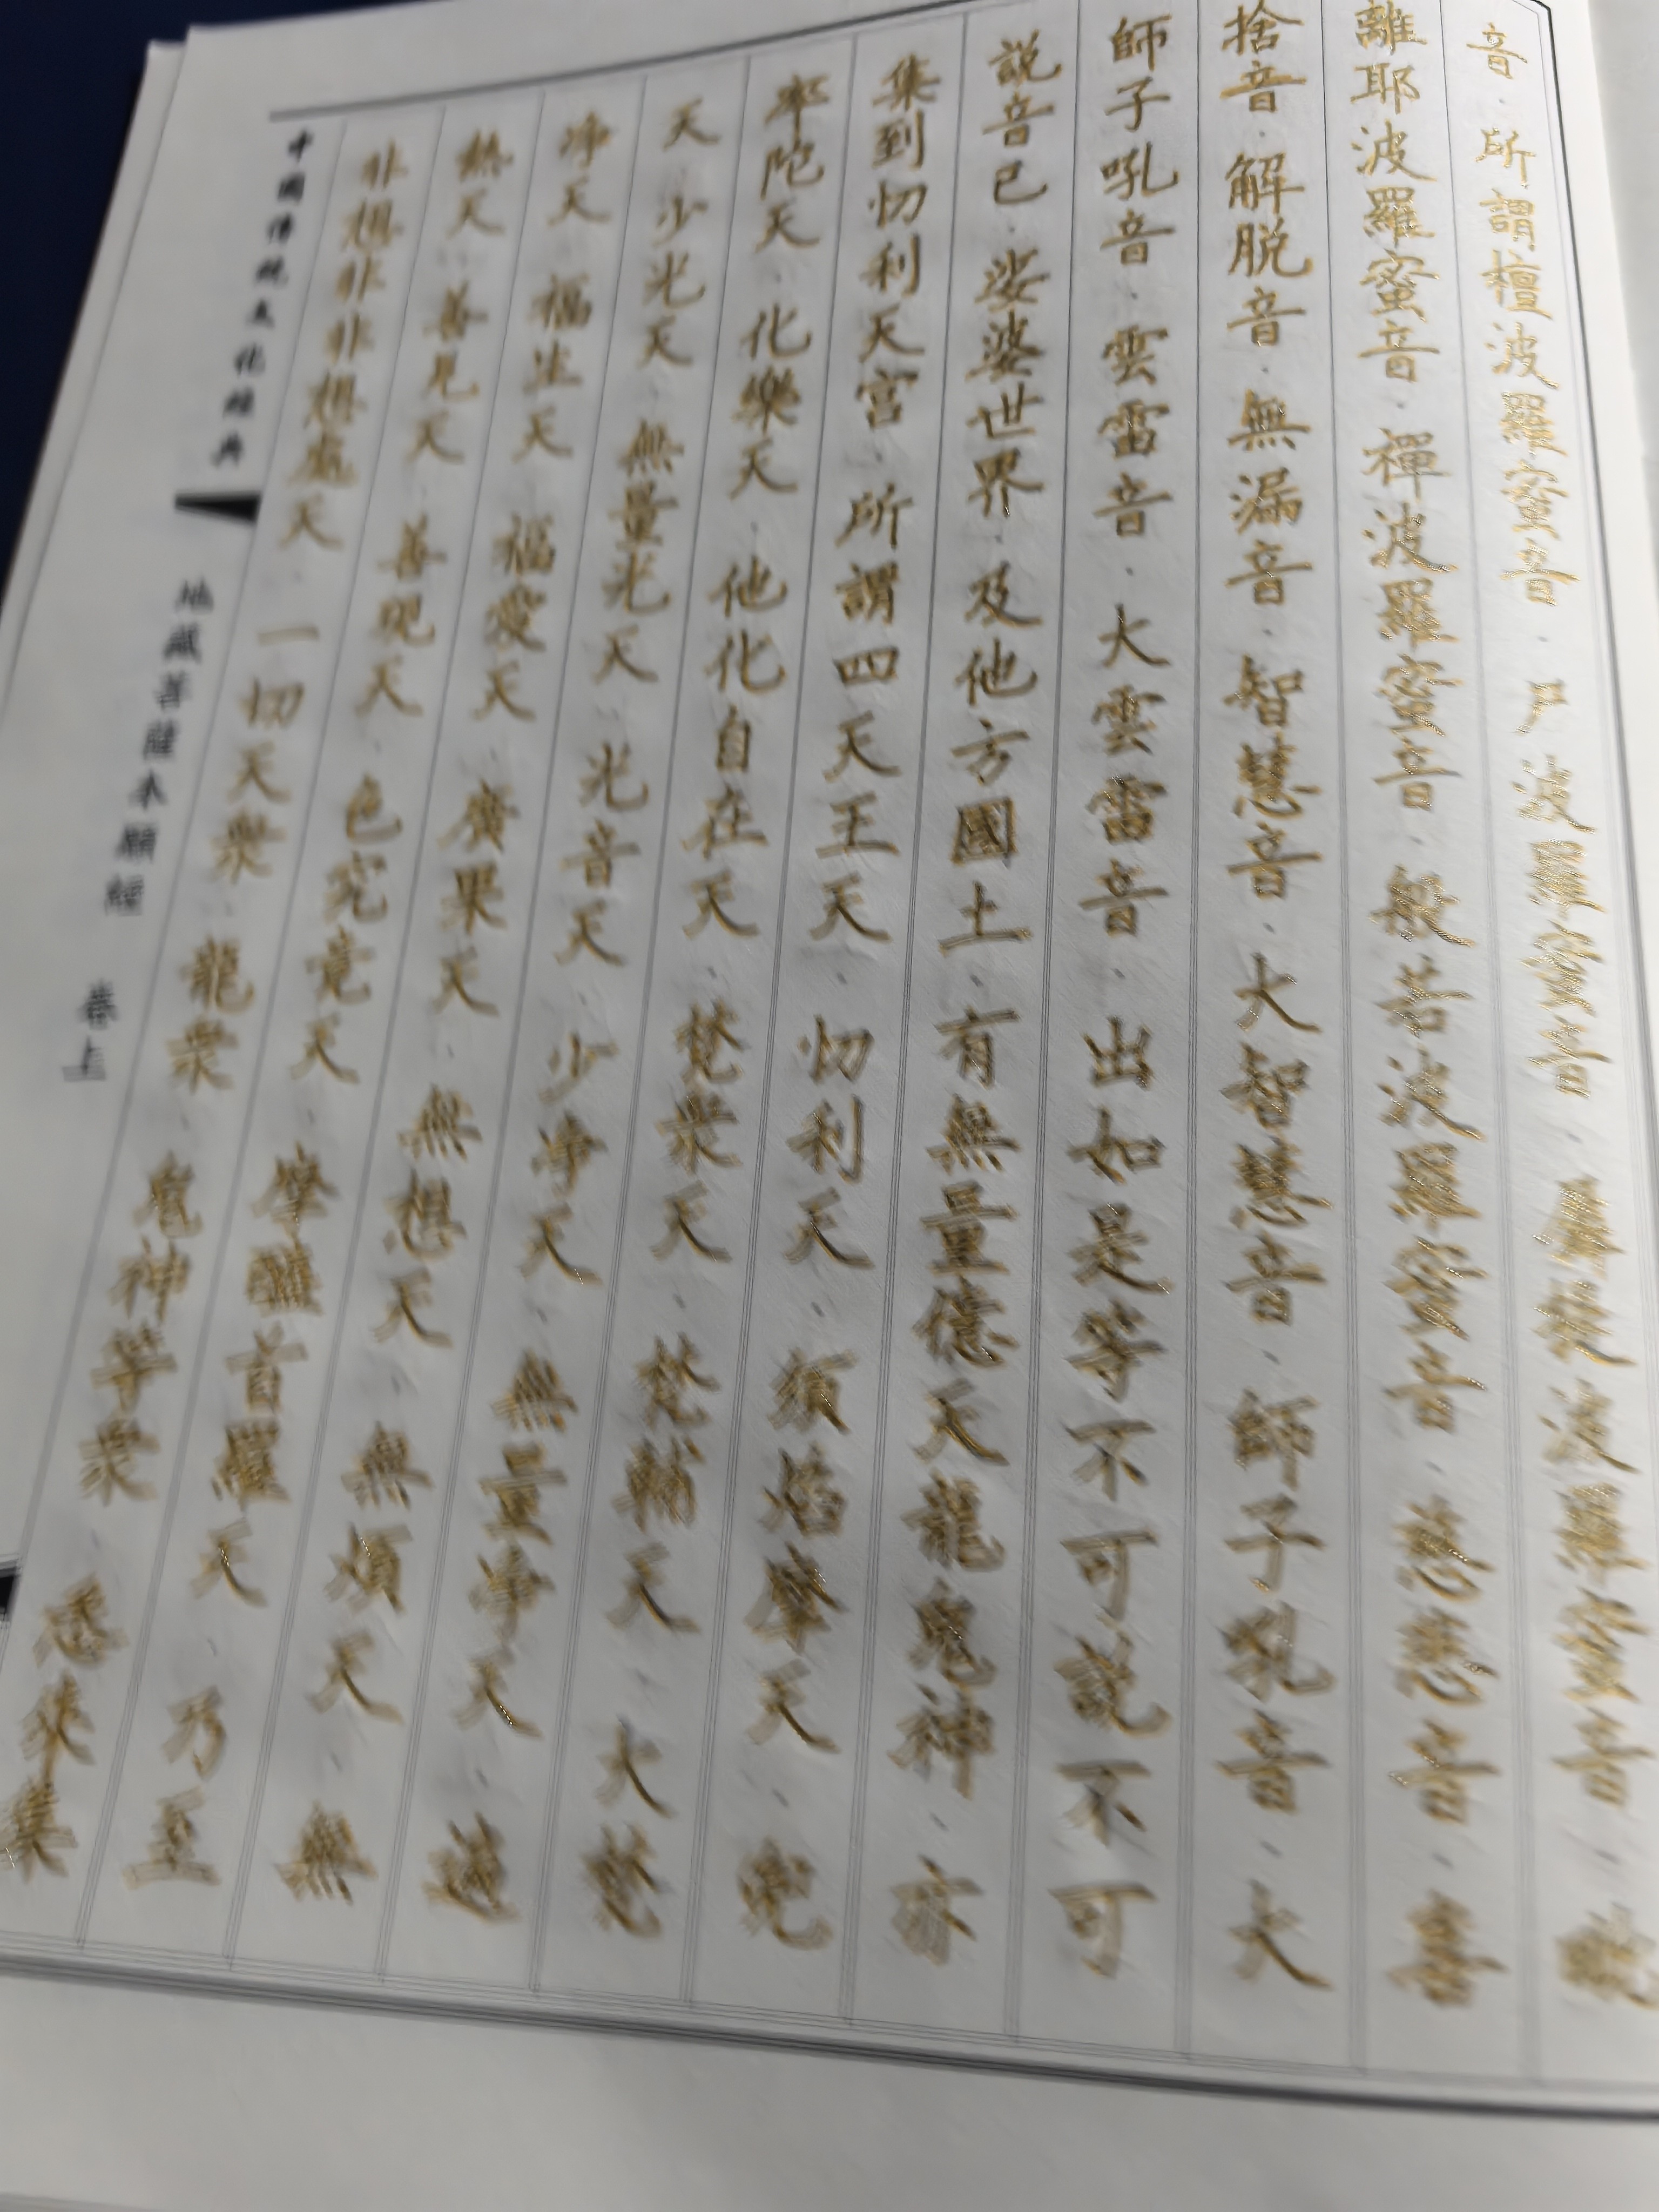 音．所謂檀波羅蜜音．尸波羅蜜音．羼提波羅蜜音．毗
離耶波羅蜜音．禪波羅蜜音．般若波羅蜜音．慈悲音．喜
捨音．解脱音．無漏音．智慧音．大智慧音．師子吼音．大
師子吼音．雲雷音．大雲雷音．出如是等不可説不可
説音已．娑婆世界．及他方國土．有無量億天龍鬼神．亦
集到忉利天宮．所謂四天王天．忉利天．須焰摩天．兜
率陀天．化樂天．他化自在天．梵衆天．梵輔天．大梵
天．少光天．無量光天．光音天．少淨天．無量淨天．遍
淨天．福生天．福愛天．廣果天．無想天．無煩天．無
熱天．善見天．善現天．色究竟天．摩醯首羅天．乃至
非想非非想處天．一切天衆．龍衆．鬼神等衆．悉來集
中國傳統文化經典
地藏菩薩本願經 卷上